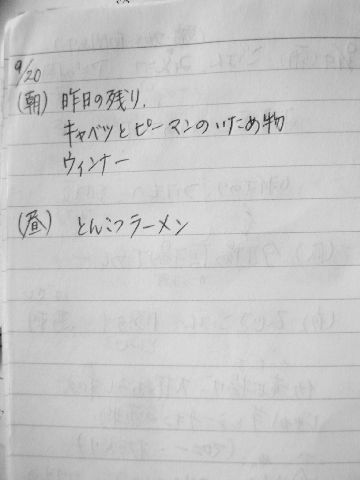 9/20
(朝) 昨日の残り.
キャベツとピーマンのいため物
ウィンナー
(昼) とんこつラーメン